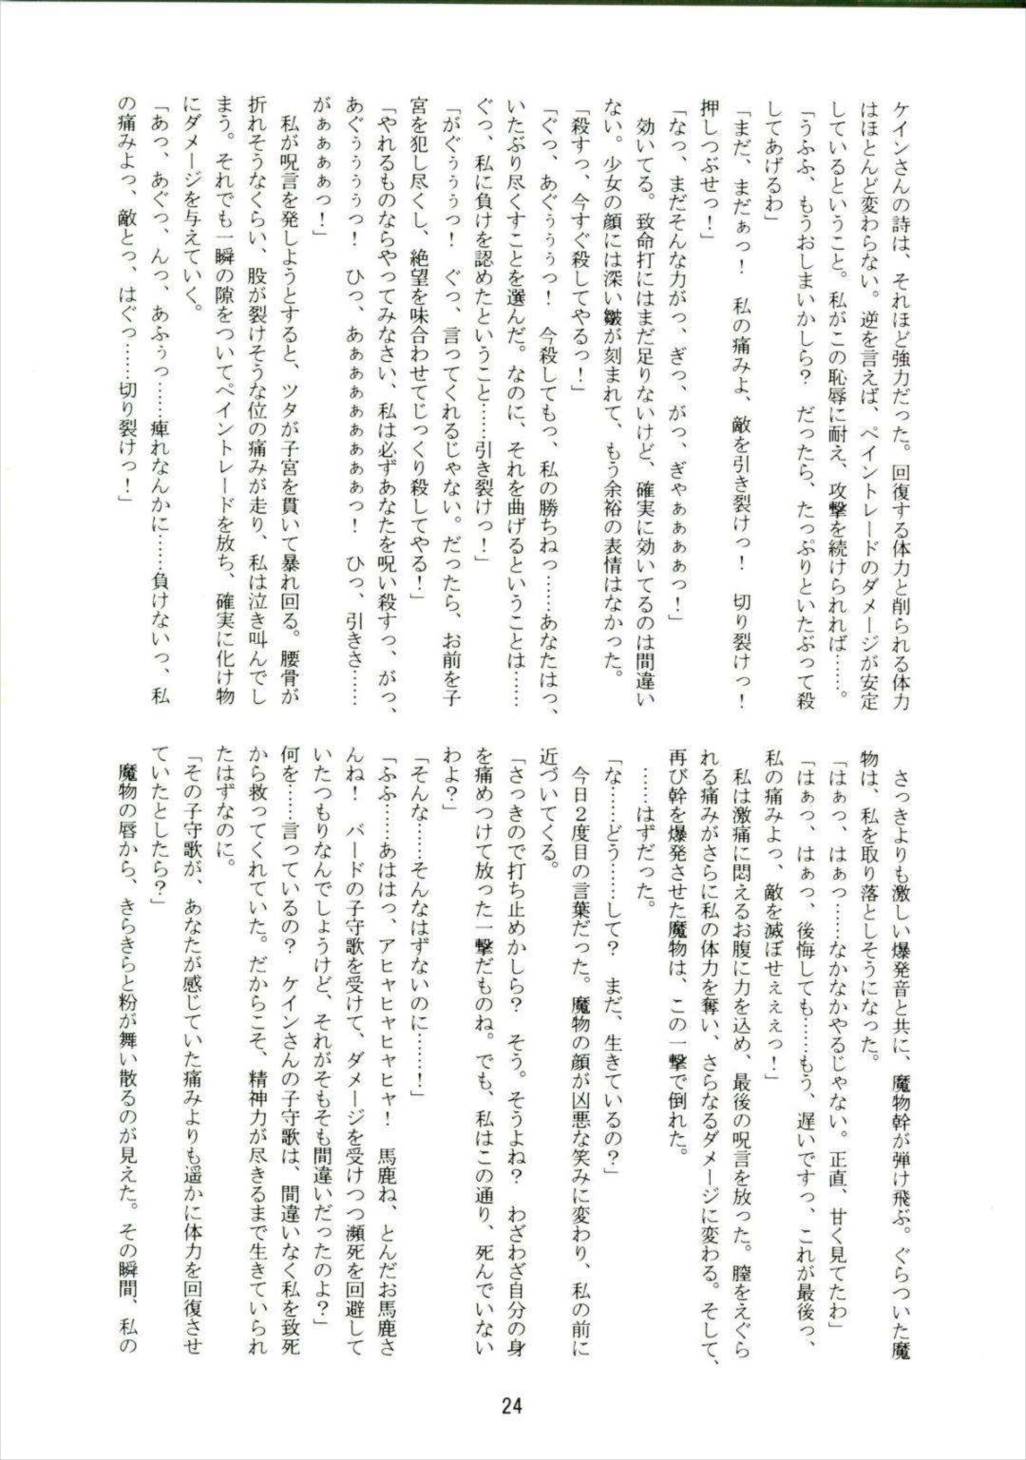 ケインさんの詩は、それほど強力だった。回復する体力と削られる体力
はほとんど変わらない。逆を言えば、ペイントレードのダメージが安定
しているということ。私がこの恥辱に耐え、攻撃を続けられれば……。
「うふふ、もうおしまいかしら？　だったら、たっぷりといたぶって殺
してあげるわ」
「まだ、まだぁっ！　私の痛みよ、敵を引き裂けっ！　切り裂けっ！
押しつぶせっ！」
「なっ、まだそんな力がっ、ぎっ、がっ、ぎゃぁぁぁぁっ！」
　効いてる。致命打にはまだ足りないけど、確実に効いてるのは間違い
ない。少女の顔には深い皺が刻まれて、もう余裕の表情はなかった。
「殺すっ、今すぐ殺してやるっ！」
「ぐっ、あぐぅぅぅっ！　今殺してもっ、私の勝ちねっ……あなたはっ、
いたぶり尽くすことを選んだ。なのに、それを曲げるということは……
ぐっ、私に負けを認めたということ……引き裂けっ！」
「がぐぅぅぅっ！　ぐっ、言ってくれるじゃない。だったら、お前を子
宮を犯し尽くし、絶望を味合わせてじっくり殺してやる！」
「やれるものならやってみなさい、私は必ずあなたを呪い殺すっ、がっ、
あぐぅぅぅぅっ！　ひっ、あぁぁぁぁぁぁぁぁっ！　ひっ、引きさ……
がぁぁぁぁぁっ！」
　私が呪言を発しようとすると、ツタが子宮を貫いて暴れ回る。腰骨が
折れそうなくらい、股が裂けそうな位の痛みが走り、私は泣き叫んでし
まう。それでも一瞬の隙をついてペイントレードを放ち、確実に化け物
にダメージを与えていく。
「あっ、あぐっ、んっ、あふぅっ……痺れなんかに……負けないっ、私
の痛みよっ、敵とっ、はぐっ……切り裂けっ！」
　さっきよりも激しい爆発音と共に、魔物幹が弾け飛ぶ。ぐらついた魔
物は、私を取り落としそうになった。
「はぁっ、はぁっ……なかなかやるじゃない。正直、甘く見てたわ」
「はぁっ、はぁっ、後悔しても……もう、遅いですっ、これが最後っ、
私の痛みよっ、敵を滅ぼせぇぇぇっ！」
　私は激痛に悶えるお腹に力を込め、最後の呪言を放った。膣をえぐら
れる痛みがさらに私の体力を奪い、さらなるダメージに変わる。そして、
再び幹を爆発させた魔物は、この一撃で倒れた。
　……はずだった。
「な……どう……して？　まだ、生きているの？」
　今日２度目の言葉だった。魔物の顔が凶悪な笑みに変わり、私の前に
近づいてくる。
「さっきので打ち止めかしら？　そう。そうよね？　わざわざ自分の身
を痛めつけて放った一撃だものね。でも、私はこの通り、死んでいない
わよ？」
「そんな……そんなはずないのに……！」
「ふふ……あははっ、アヒャヒャヒャヒャ！　馬鹿ね、とんだお馬鹿さ
んね！　バードの子守歌を受けて、ダメージを受けつつ瀕死を回避して
いたつもりなんでしょうけど、それがそもそも間違いだったのよ？」
何を……言っているの？　ケインさんの子守歌は、間違いなく私を致死
から救ってくれていた。だからこそ、精神力が尽きるまで生きていられ
たはずなのに。
「その子守歌が、あなたが感じていた痛みよりも遥かに体力を回復させ
ていたとしたら？」
　魔物の唇から、きらきらと粉が舞い散るのが見えた。その瞬間、私の
24